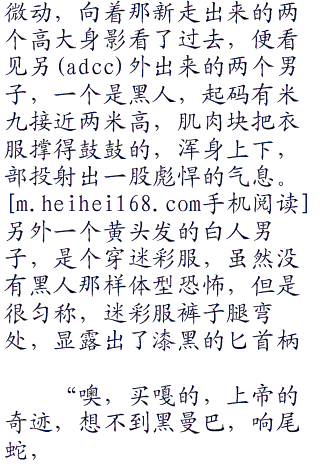 微动，向着那新走出来的两
个高大身影看了过去，便看
见另(adcc)外出来的两个男
子，一个是黑人，起码有米
九接近两米高，肌肉块把衣
服撑得鼓鼓的，浑身上下，
部投射出一股彪悍的气息。
[m.heihei168.com手机阅读]
另外一个黄头发的白人男
子，是个穿迷彩服，虽然没
有黑人那样体型恐怖，但是
很匀称，迷彩服裤子腿弯
处，显露出了漆黑的匕首柄
“噢，买嘎的，上帝的
奇迹，想不到黑曼巴，响尾
蛇，